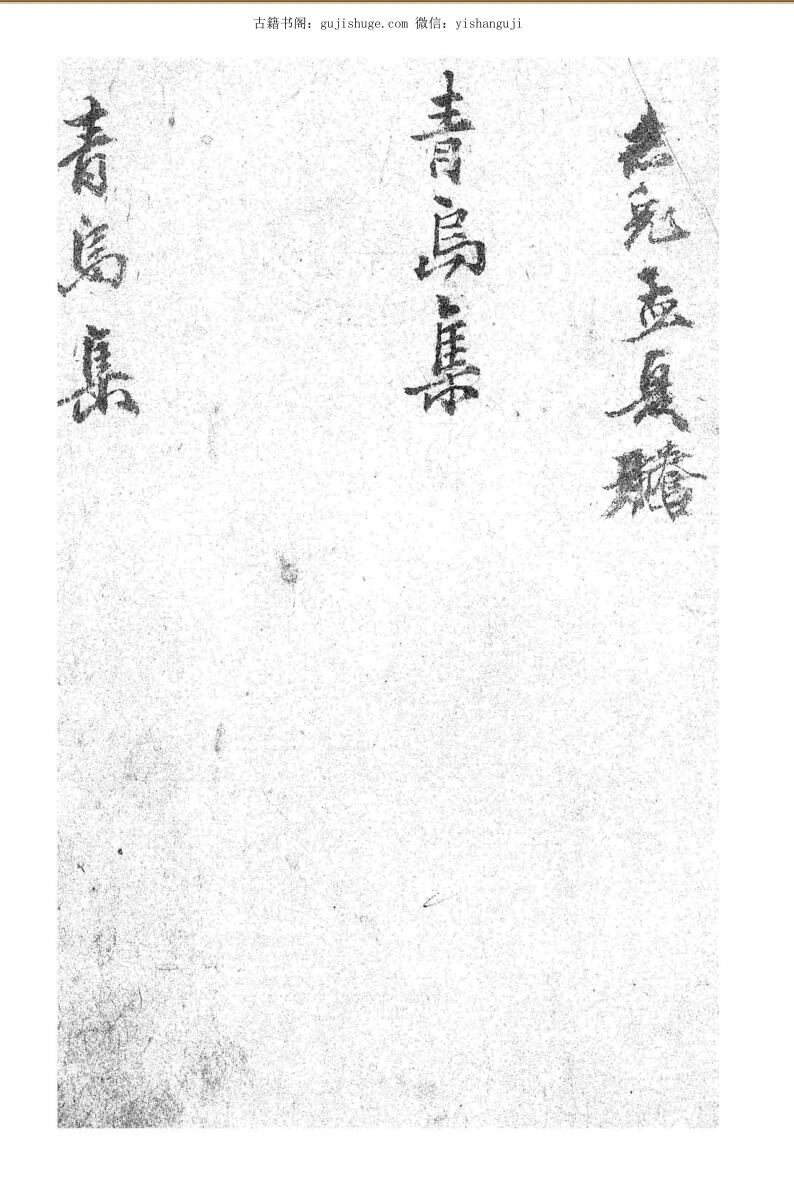 古籍书阁：gujishuge.com 微信：yishanguji
赤兔孟夏謄
青烏集
青烏集